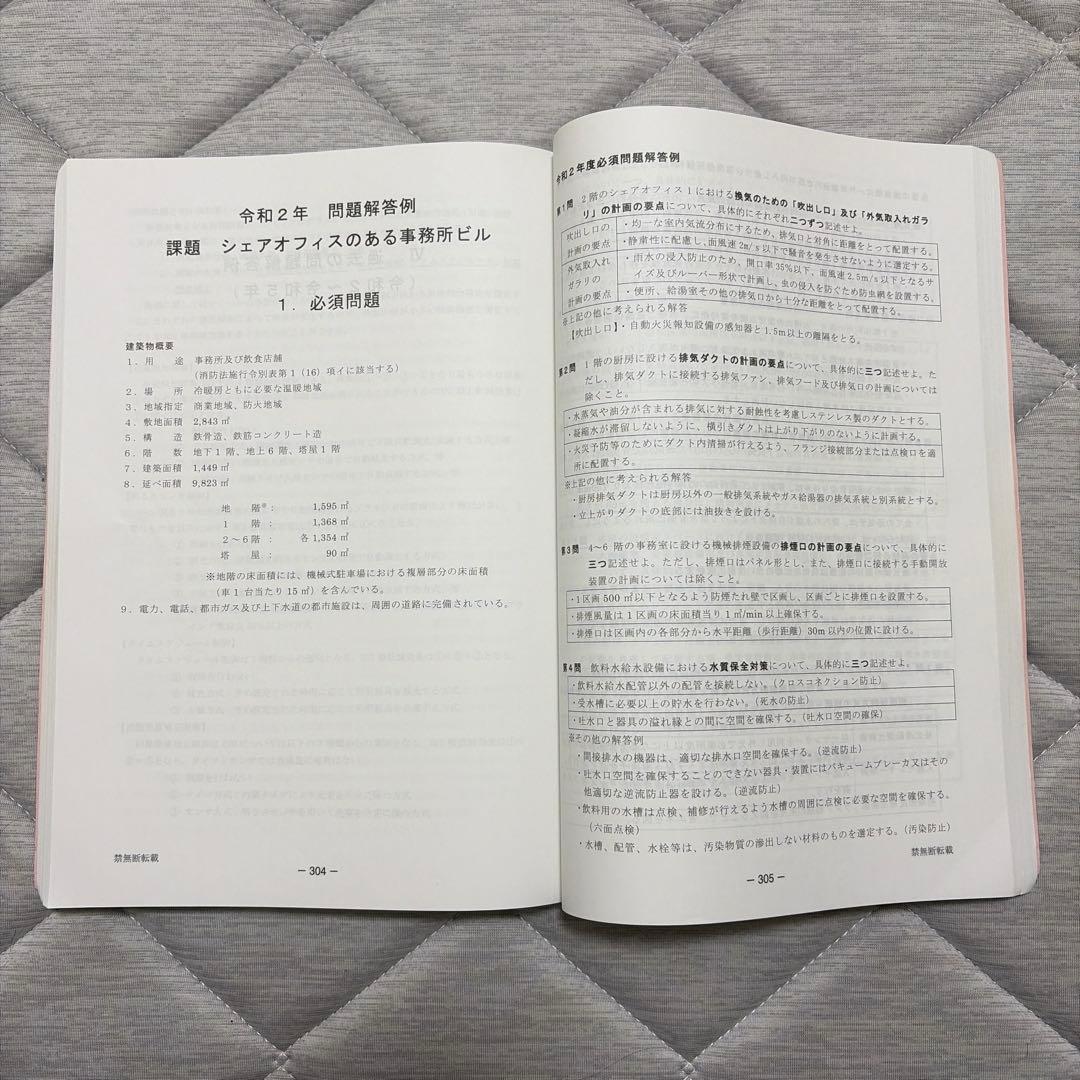 令和２年　問題解答例
課題　シェアオフィスのある事務所ビル
１．必須問題
建築物概要
１．用　　途　事務所及び飲食店舗
（消防法施行令別表第１（16）項イに該当する）
２．場　　所　冷暖房ともに必要な温暖地域
３．地域指定　商業地域、防火地域
４．敷地面積　2,843 ㎡
５．構　　造　鉄骨造、鉄筋コンクリート造
６．階　　数　地下１階、地上６階、塔屋１階
７．建築面積　1,449 ㎡
８．延べ面積　9,823 ㎡
地　　階※：　　1,595 ㎡
１　　階：　　1,368 ㎡
２～６階：　各 1,354 ㎡
塔　　屋：　　90 ㎡
※地階の床面積には、機械式駐車場における複層部分の床面積
（車１台当たり 15 ㎡）を含んでいる。
９．電力、電話、都市ガス及び上下水道の都市施設は、周囲の道路に完備されている。
禁無断転載
－304－
令和２年度必須問題解答例
第１問　２階のシェアオフィス１における換気のための「吹出し口」及び「外気取入れガラ
リ」の計画の要点について、具体的にそれぞれ二つずつ記述せよ。
吹出し口の
計画の要点
・均一な室内気流分布にするため、排気口と対角に距離をとって配置する。
・静粛性に配慮し、面風速 2m/s 以下で騒音を発生させないように選定する。
外気取入れ
ガラリの
計画の要点
・雨水の浸入防止のため、開口率 35%以下、面風速 2.5m/s 以下となるサ
イズ及びルーバー形状で計画し、虫の侵入を防ぐため防虫網を設置する。
・便所、給湯室その他の排気口から十分な距離をとって配置する。
※上記の他に考えられる解答
【吹出し口】・自動火災報知設備の感知器と 1.5m以上の離隔をとる。
第２問　１階の厨房に設ける排気ダクトの計画の要点について、具体的に三つ記述せよ。た
だし、排気ダクトに接続する排気ファン、排気フード及び排気口の計画については
除くこと。
・水蒸気や油分が含まれる排気に対する耐蝕性を考慮しステンレス製のダクトとする。
・凝縮水が滞留しないように、横引きダクトは上がり下がりのないように計画する。
・火災予防等のためにダクト内清掃が行えるよう、フランジ接続部分または点検口を適
所に配置する。
※上記の他に考えられる解答
・厨房排気ダクトは厨房以外の一般排気系統やガス給湯器の排気系統と別系統とする。
・立上がりダクトの底部には油抜きを設ける。
第３問　4～6 階の事務室に設ける機械排煙設備の排煙口の計画の要点について、具体的に
三つ記述せよ。ただし、排煙口はパネル形とし、また、排煙口に接続する手動開放
装置の計画については除くこと。
・１区画 500 ㎡以下となるよう防煙たれ壁で区画し、区画ごとに排煙口を設置する。
・排煙風量は１区画の床面積当り 1 ㎥/min 以上確保する。
・排煙口は区画内の各部分から水平距離（歩行距離）30m 以内の位置に設ける。
第４問　飲料水給水設備における水質保全対策について、具体的に三つ記述せよ。
・飲料水給水配管以外の配管を接続しない。（クロスコネクション防止）
・受水槽に必要以上の貯水を行わない。（死水の防止）
・吐水口と器具の溢れ縁との間に空間を確保する。（吐水口空間の確保）
※その他の解答例
・間接排水の機器は、適切な排水口空間を確保する。（逆流防止）
・吐水口空間を確保することのできない器具・装置にはバキュームブレーカ又はその
他適切な逆流防止器を設ける。（逆流防止）
・飲料用の水槽は点検、補修が行えるよう水槽の周囲に点検に必要な空間を確保する。
（六面点検）
・水槽、配管、水栓等は、汚染物質の滲出しない材料のものを選定する。（汚染防止）
禁無断転載
－305－